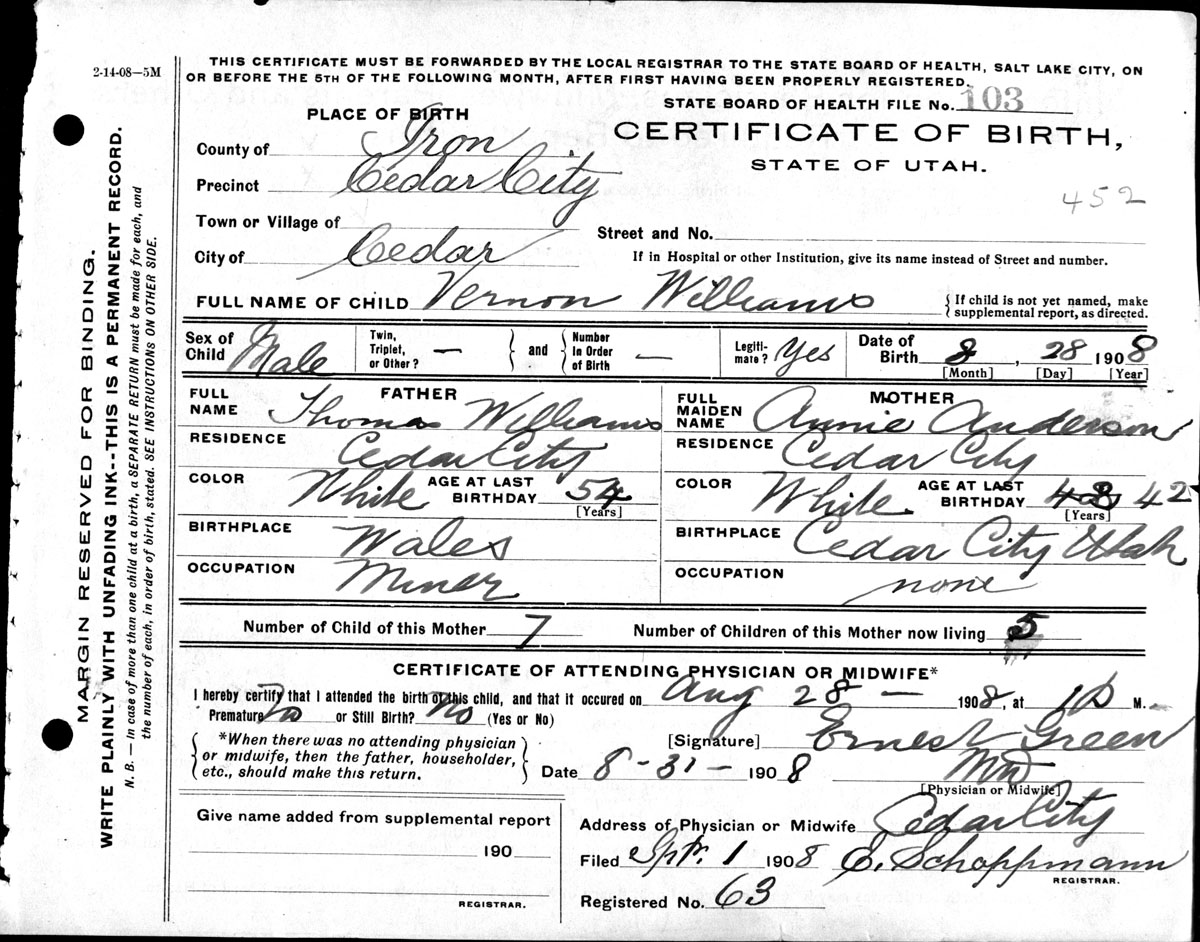 2-14-08—5M
THIS CERTIFICATE MUST BE FORWARDED BY THE LOCAL REGISTRAR TO THE STATE BOARD OF HEALTH, SALT LAKE CITY, ON
OR BEFORE THE 5TH OF THE FOLLOWING MONTH, AFTER FIRST HAVING BEEN PROPERLY REGISTERED.
STATE BOARD OF HEALTH FILE No. 103
PLACE OF BIRTH
CERTIFICATE OF BIRTH,
STATE OF UTAH.
County of Iron
Precinct Cedar City
452
Town or Village of
Street and No.
City of Cedar
If in Hospital or other Institution, give its name instead of Street and number.
FULL NAME OF CHILD Vernon Williams
{If child is not yet named, make
supplemental report, as directed.
Sex of Child Male
Twin, Triplet, or Other? —
} and {
Number In Order of Birth —
Legiti-mate? Yes
Date of Birth 8, 28 1908
[Month] [Day] [Year]
FATHER
FULL NAME Thomas Williams
RESIDENCE Cedar City
COLOR White AGE AT LAST BIRTHDAY 54
[Years]
BIRTHPLACE Wales
OCCUPATION Miner
MOTHER
FULL MAIDEN NAME Annie Anderson
RESIDENCE Cedar City
COLOR White AGE AT LAST BIRTHDAY 48 42
[Years]
BIRTHPLACE Cedar City Utah
OCCUPATION none
Number of Child of this Mother 7 Number of Children of this Mother now living 5
CERTIFICATE OF ATTENDING PHYSICIAN OR MIDWIFE*
I hereby certify that I attended the birth of this child, and that it occured on Aug 28 — 1908, at 1 P M.
Premature No or Still Birth? No (Yes or No)
{*When there was no attending physician
or midwife, then the father, householder,
etc., should make this return.}
[Signature] Ernest Green
Date 8-31- 1908
[Physician or Midwife]
Give name added from supplemental report
190
REGISTRAR.
Address of Physician or Midwife Cedar City
Filed Sptr. 1 1908 E. Schoppmann
REGISTRAR.
Registered No. 63
MARGIN RESERVED FOR BINDING.
WRITE PLAINLY WITH UNFADING INK--THIS IS A PERMANENT RECORD.
N. B. — In case of more than one child at a birth, a SEPARATE RETURN must be made for each, and
the number of each, in order of birth, stated. SEE INSTRUCTIONS ON OTHER SIDE.